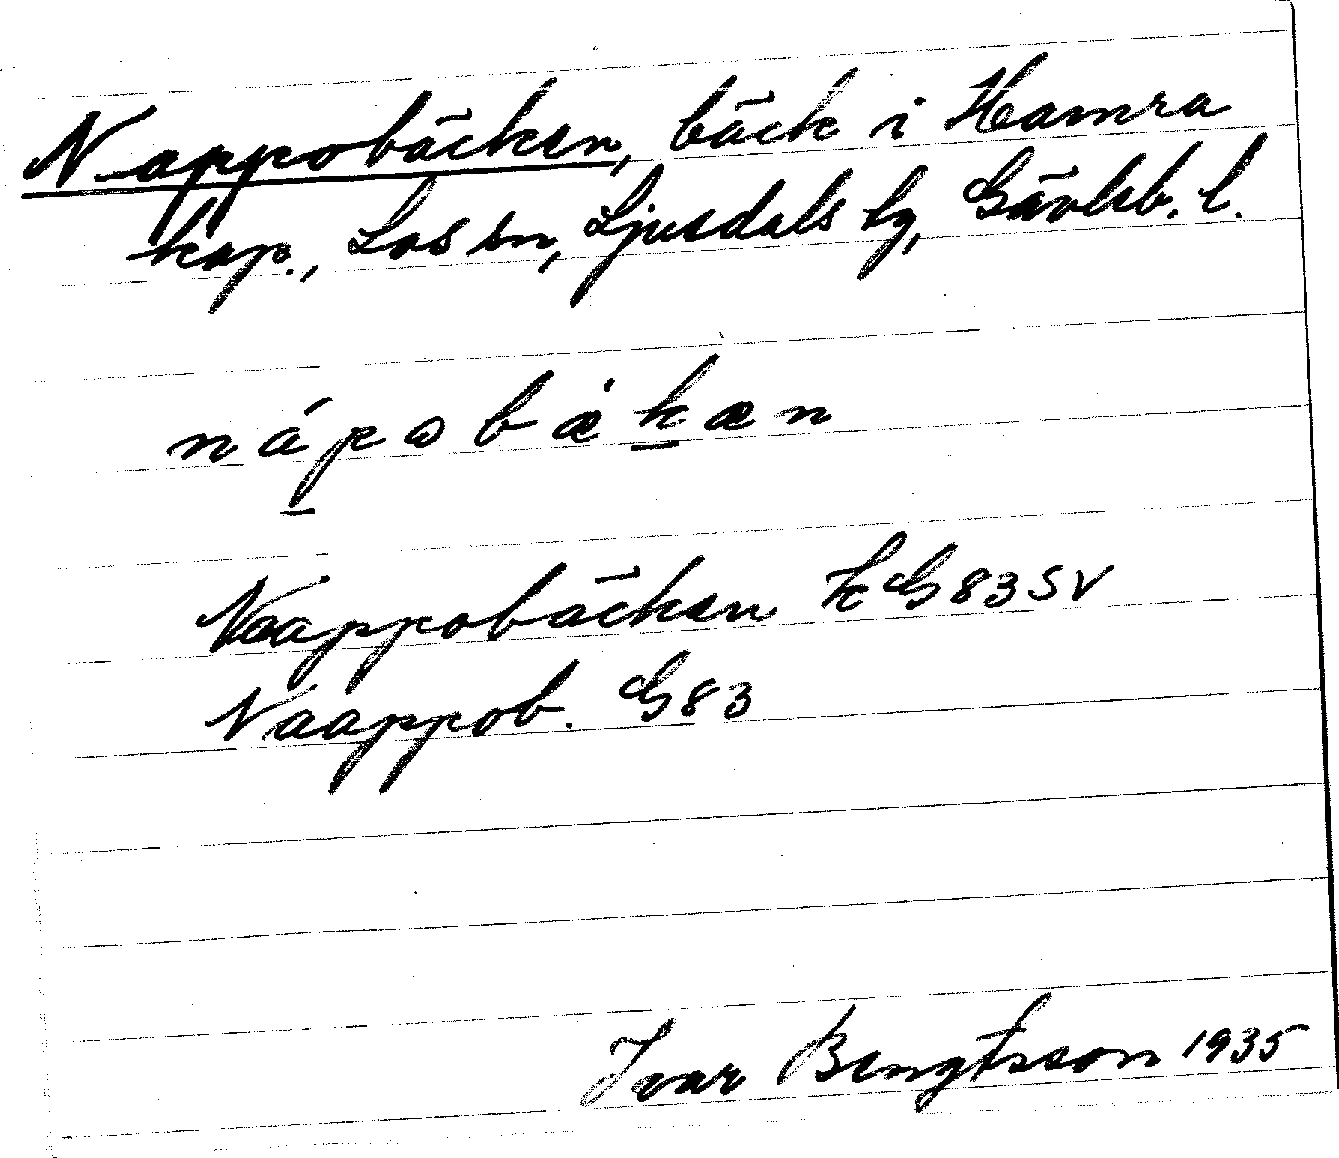 Nappobäcken, bäck i Hamra
kap., Los sn, Ljusdals tg, Gävleb. l.
nápobækæn
Naappobäcken k G 83 SV
Naappob. G 83
Ivar Bengtsson 1935